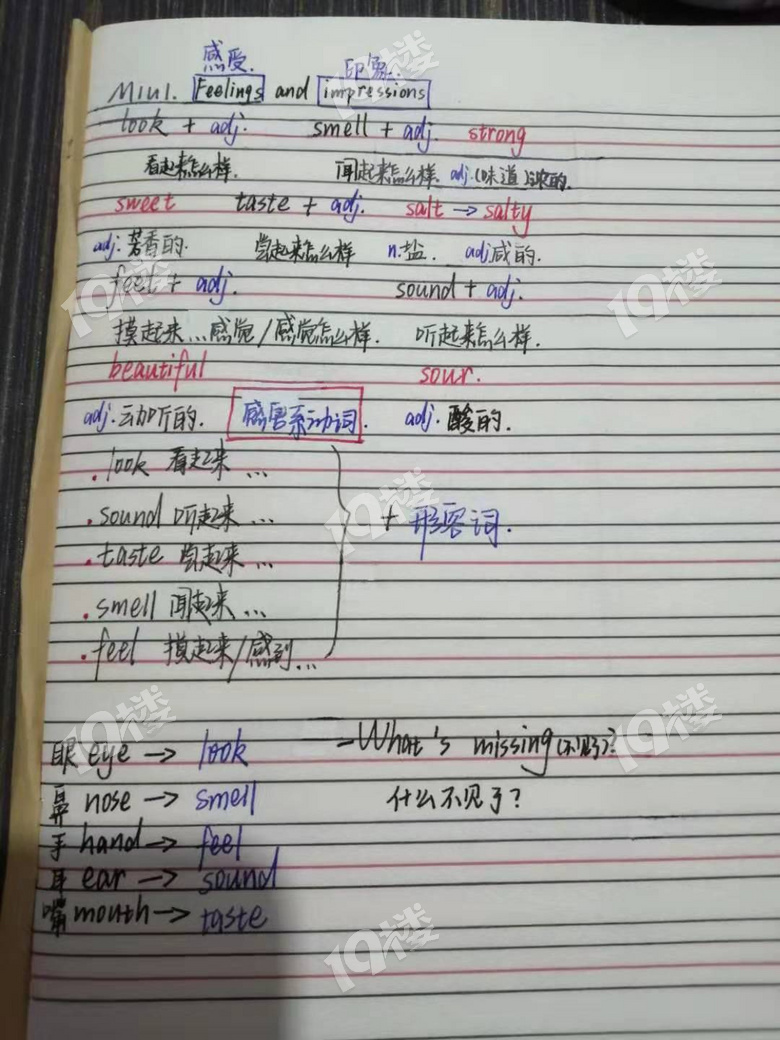 感受. 印象.
M1U1. Feelings and impressions
look + adj. smell + adj. strong
看起来怎么样. 闻起来怎么样. adj.(味道)浓的.
sweet taste + adj. salt → salty
adj.芳香的. 尝起来怎么样 n.盐. adj咸的.
feel + adj. sound + adj.
摸起来...感觉/感觉怎么样. 听起来怎么样.
beautiful sour.
adj.动听的. 感官系动词. adj.酸的.
.look 看起来...
.sound 听起来... + 形容词.
.taste 尝起来...
.smell 闻起来...
.feel 摸起来/感到...
眼 eye → look - What's missing(不见了)?
鼻 nose → smell 什么不见了?
手 hand → feel
耳 ear → sound
嘴 mouth → taste
19楼
19楼
19楼
19楼
19楼
19楼
19楼
19楼
19楼